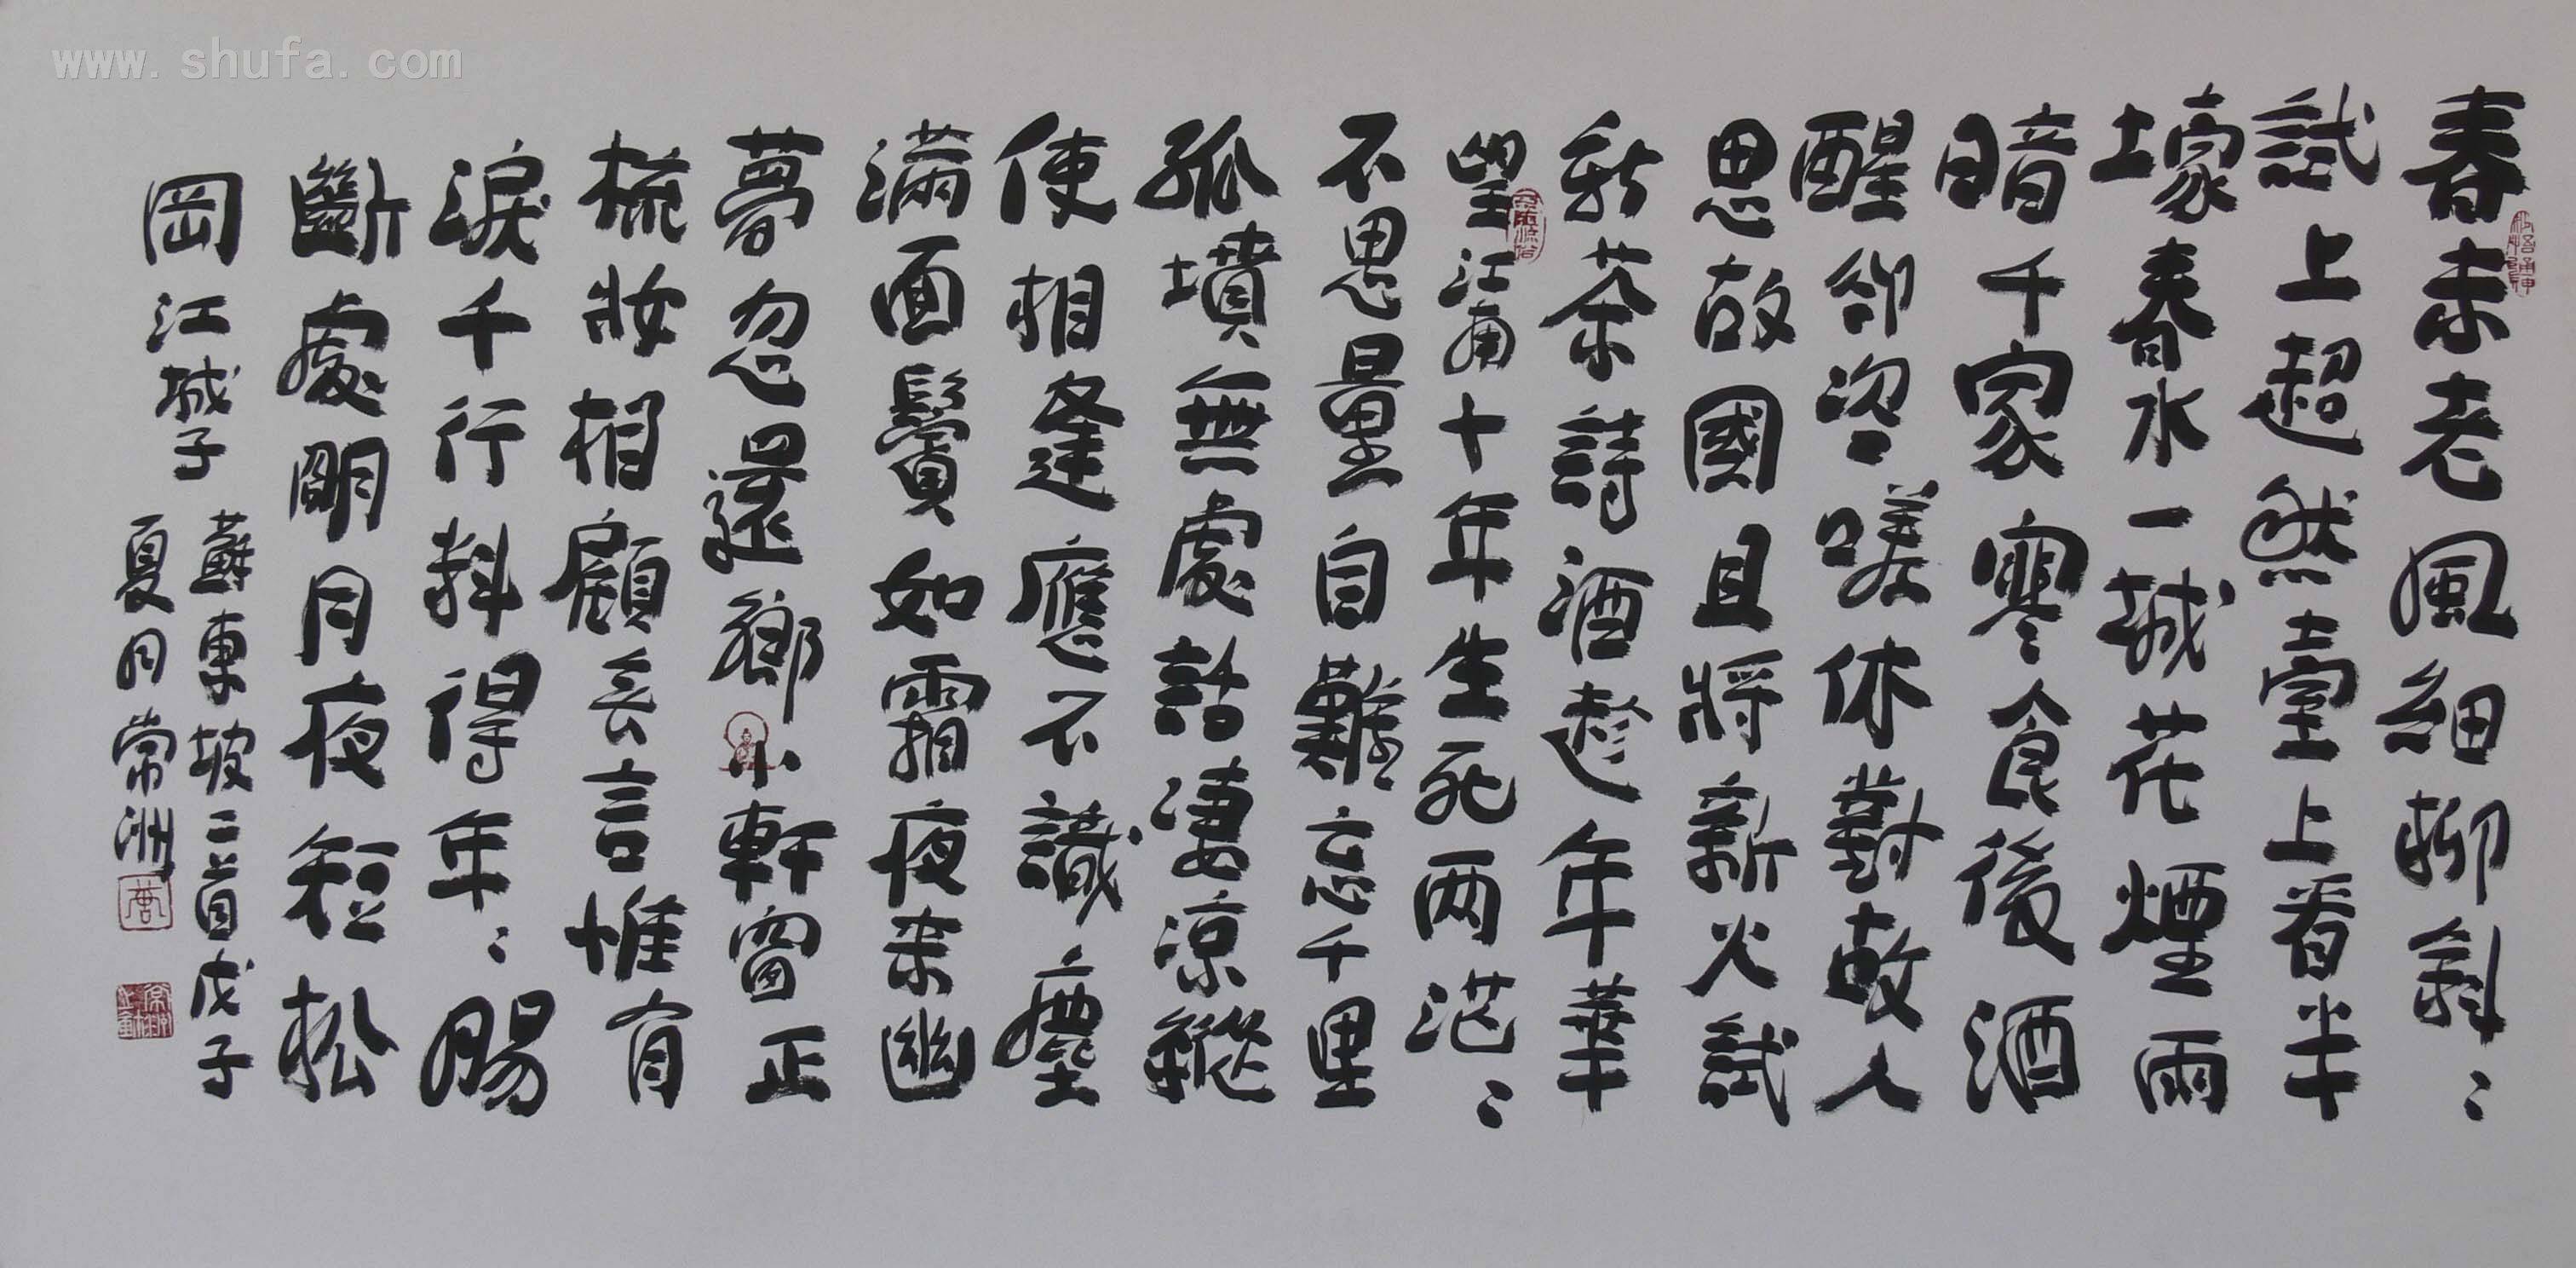 www.shufa.com
春未老風細柳斜々
試上超然臺上看半
壕春水一城花煙雨
暗千家寒食後酒
醒卻咨嗟休對故人
思故國且將新火試
新茶詩酒趁年華
望江南十年生死两茫々
不思量自難忘千里
孤墳無處話淒涼縱
使相逢應不識塵
滿面鬢如霜夜來幽
夢忽還鄉小軒窗正
梳妝相顧無言惟有
淚千行料得年々腸
斷處明月夜短松
岡江城子
蘇東坡二首戊子
夏月常洲